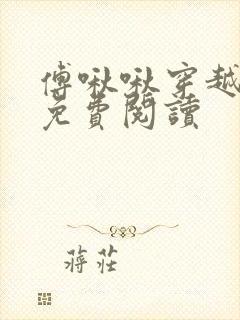 傅啾啾穿越
免費閱讀
蔣莊